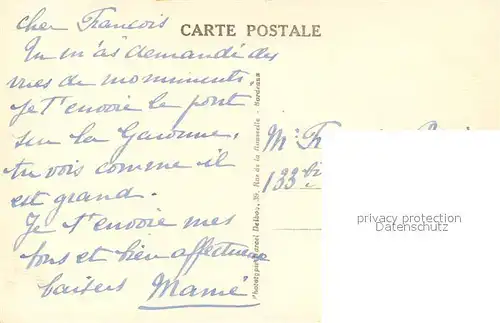 CARTE POSTALE
cher François
Tu m'as demandé des
vues de monuments.
Je t'envoie le pont
sur la Garonne,
tu vois comme il
est grand.
Je t'envoie mes
bons et bien affectueux
baisers Mamé
Mr
133 bis
Phototypie Marcel Delboy, Rue de la Rousselle - Bordeaux
privacy protection
Datenschutz